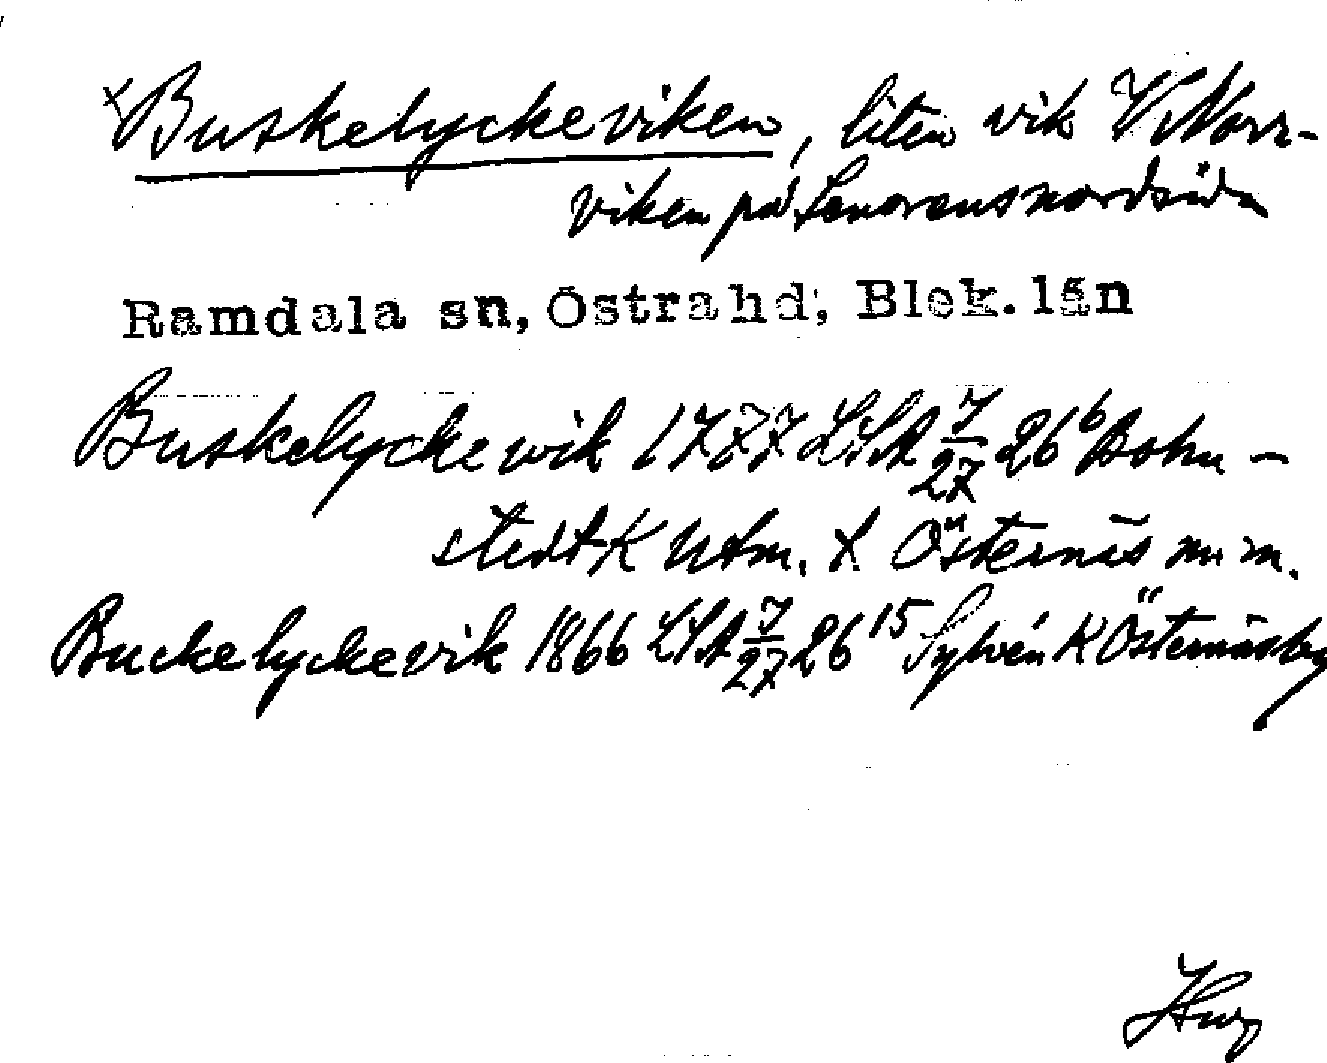 ×Buskelyckeviken, liten vik V Norr-
viken på Senorens nordsida
Ramdala sn, Östra hd, Blek. län
Buskelycke wik 1777 LSA 7/27 26⁶ Bohn-
stedt K Utm. t. Östernäs m m.
Buckelyckevik 1866 LSA 7/27 26¹⁵ Sylvén K Östernäsby